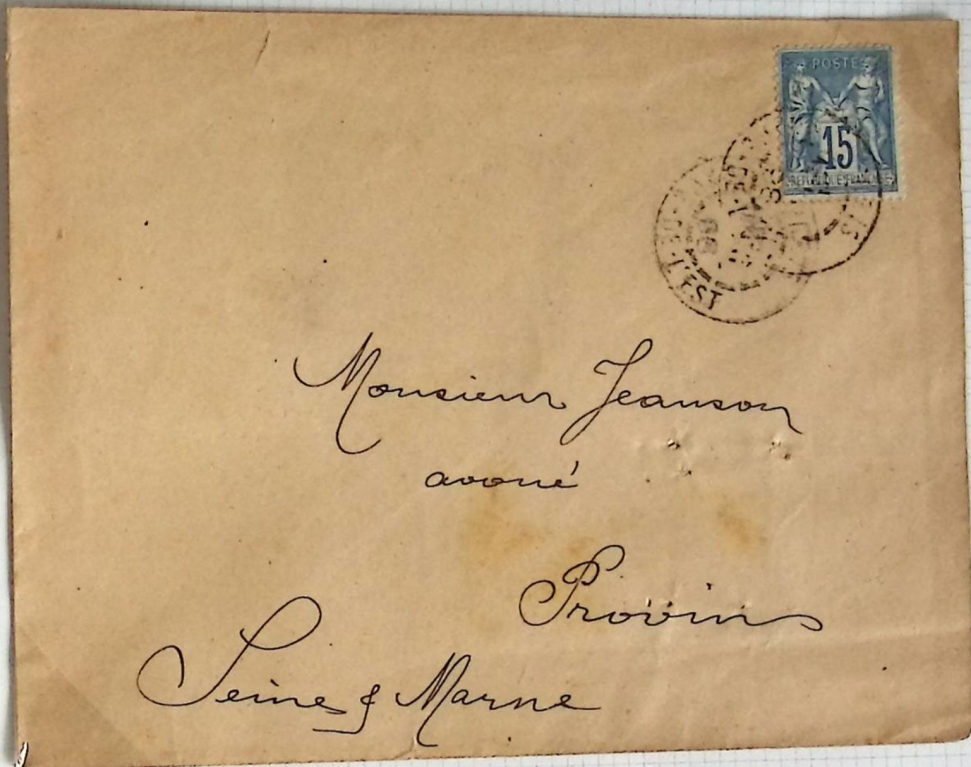 POSTE
15
REPUBLIQUE FRANCAISE
L'EST
Monsieur Jeanson
avoué
Provins
Seine & Marne